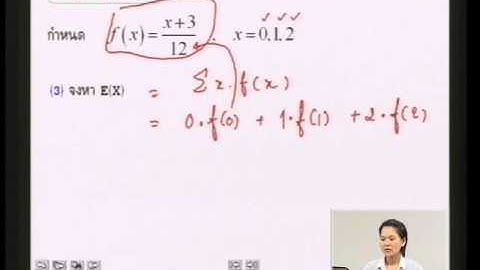 กำหนด f(x) = \frac{x+3}{12} x = 0,1,2
(3) จงหา E(X) = Σ x . f(x)
= 0 · f(0) + 1 · f(1) + 2 · f(2)